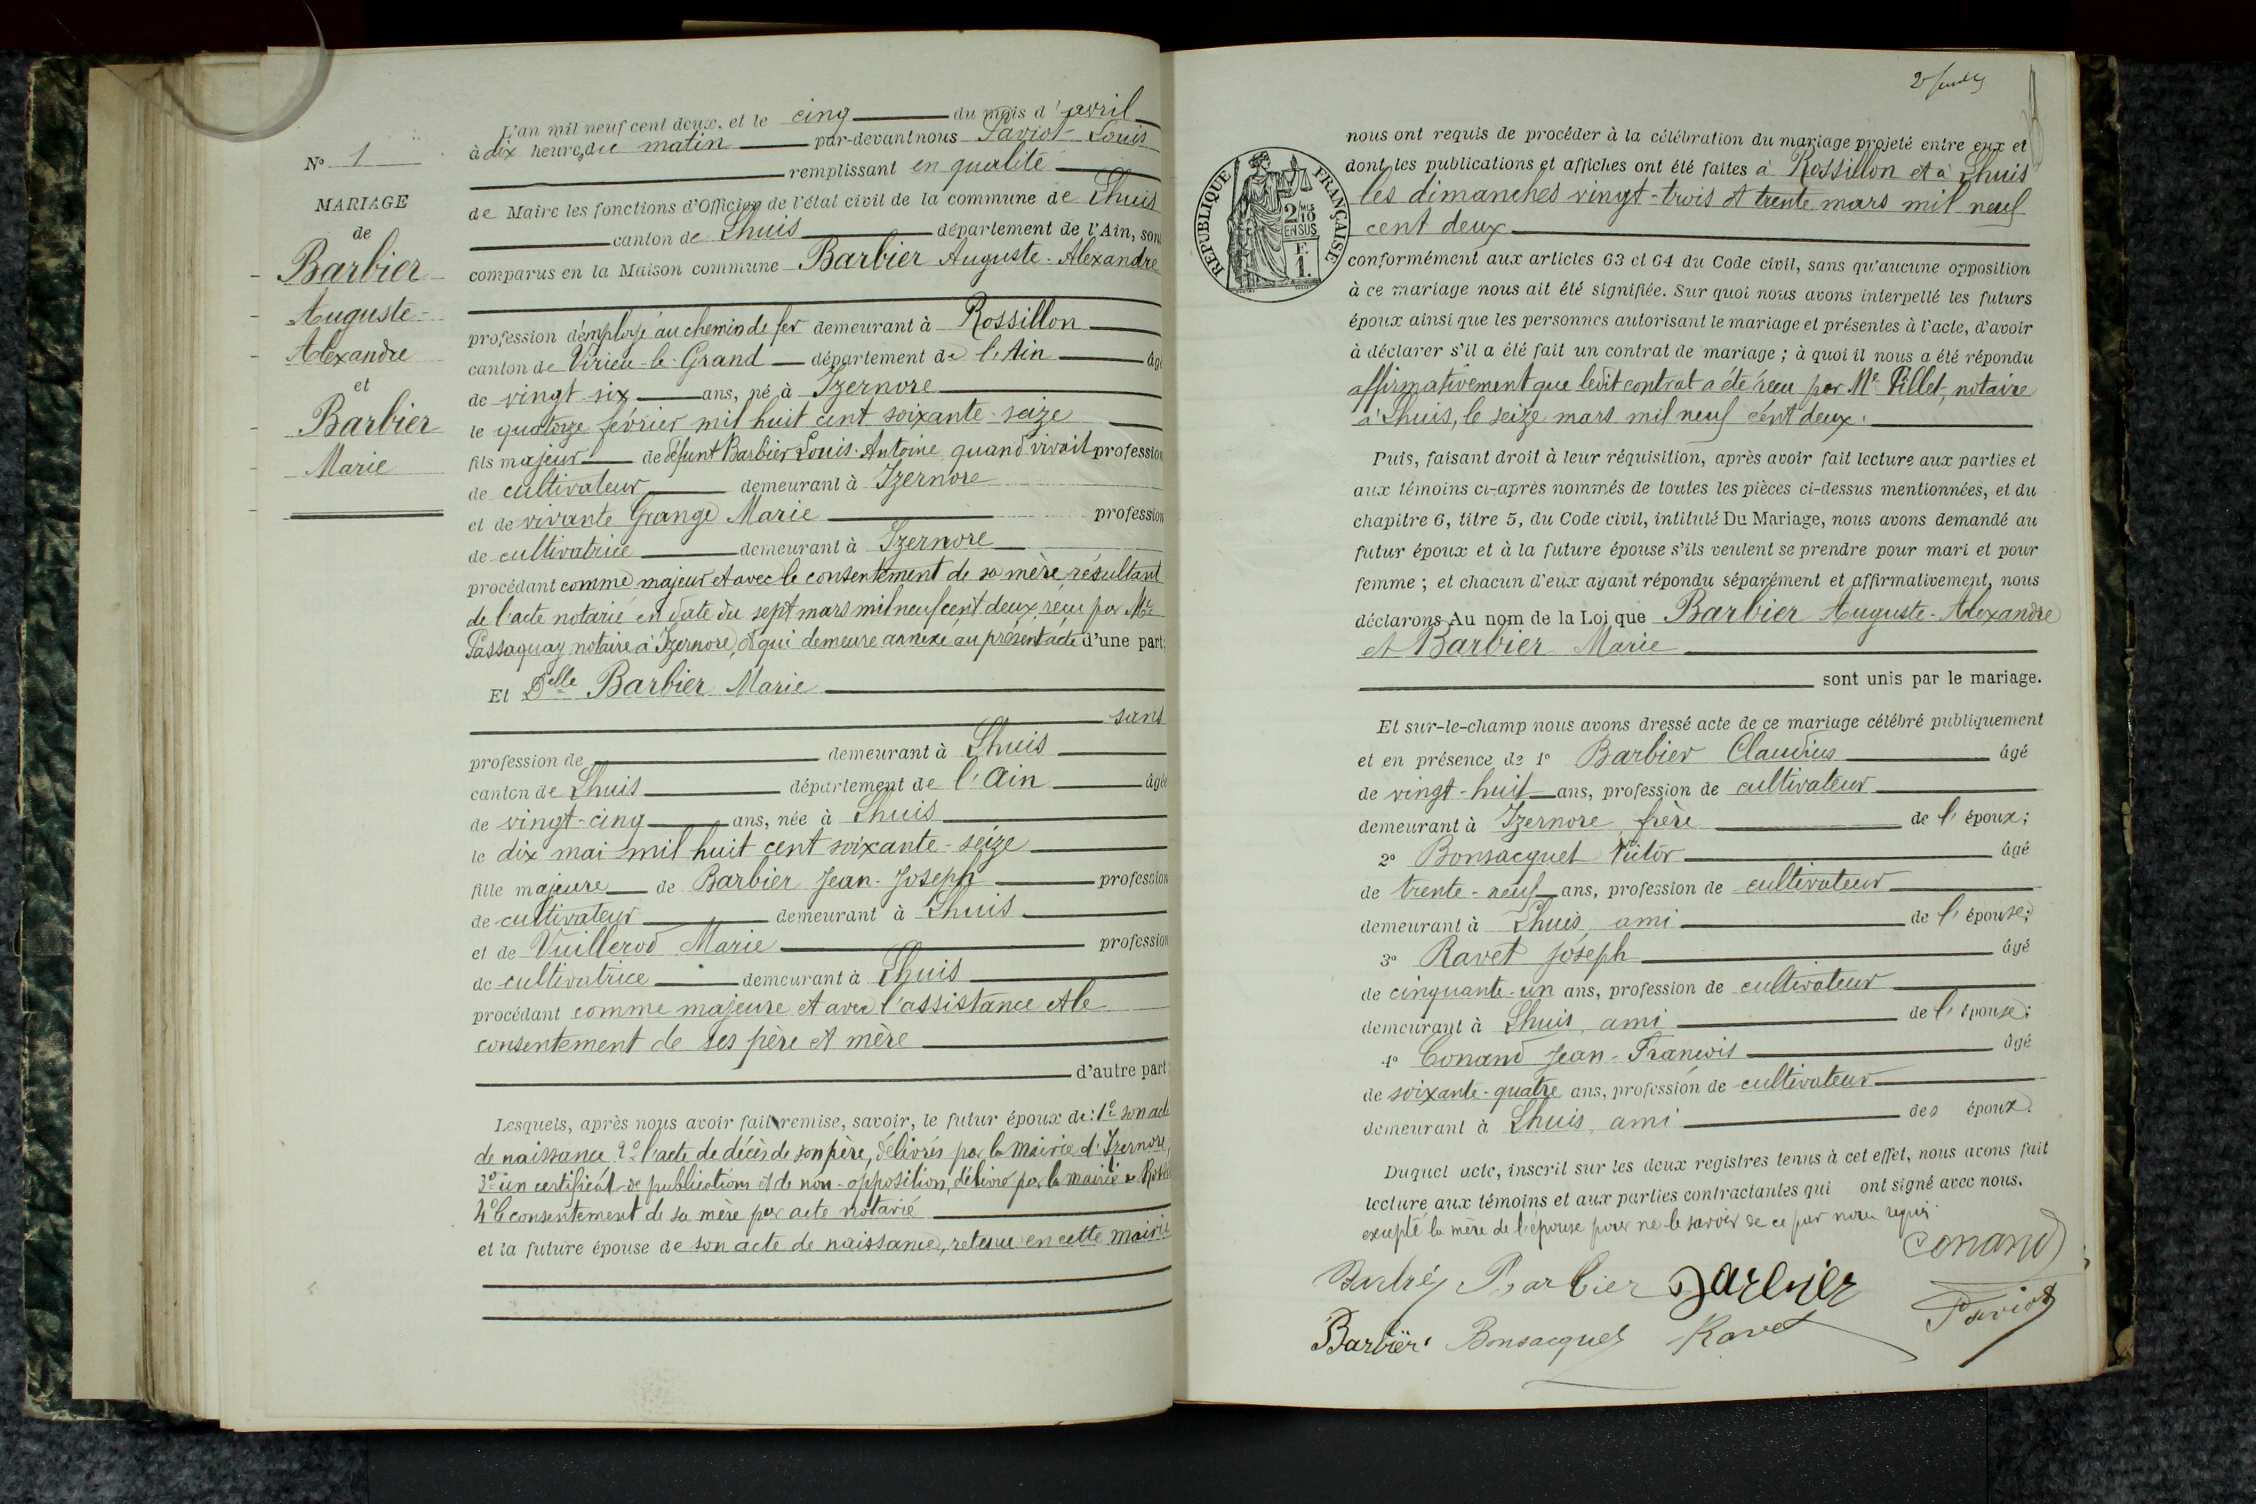 N° 1
MARIAGE
de
Barbier
Auguste-
Alexandre
et
Barbier
Marie
L'an mil neuf cent deux, et le cinq du mois d'avril
à dix heures du matin par-devant nous Paviot Louis
remplissant en qualité
de Maire les fonctions d'Officier de l'état civil de la commune de Lhuis
canton de Lhuis département de l'Ain, sont
comparus en la Maison commune Barbier Auguste-Alexandre
profession d'employé au chemin de fer demeurant à Rossillon
canton de Virieu-le-Grand département de l'Ain âgé
de vingt-six ans, né à Izernore
le quatorze février mil huit cent soixante-seize
fils majeur de défunt Barbier Louis-Antoine, quand vivait profession
de cultivateur demeurant à Izernore
et de vivante Grange Marie profession
de cultivatrice demeurant à Izernore
procédant comme majeur et avec le consentement de sa mère, résultant
de l'acte notarié en date du sept mars mil neuf cent deux, reçu par Me
Passaquay notaire à Izernore, & qui demeure annexé au présent acte d'une part;
Et Delle Barbier Marie
sans
profession de demeurant à Lhuis
canton de Lhuis département de l'Ain âgée
de vingt-cinq ans, née à Lhuis
le dix mai mil huit cent soixante-seize
fille majeure de Barbier Jean-Joseph profession
de cultivateur demeurant à Lhuis
et de Vuillerod Marie profession
de cultivatrice demeurant à Lhuis
procédant comme majeure et avec l'assistance et le
consentement de ses père et mère
d'autre part
Lesquels, après nous avoir fait remise, savoir, le futur époux de: 1° son acte
de naissance 2° l'acte de décès de son père, délivrés par la mairie d'Izernore,
3° un certificat de publications et de non-opposition, délivré par la mairie de
4° le consentement de sa mère par acte notarié
et la future épouse de son acte de naissance, retenu en cette mairie
nous ont requis de procéder à la célébration du mariage projeté entre eux et
dont les publications et affiches ont été faites à Rossillon et à Lhuis
les dimanches vingt-trois et trente mars mil neuf
cent deux
RÉPUBLIQUE FRANÇAISE
2/10
EN SUS
F.
1.
conformément aux articles 63 et 64 du Code civil, sans qu'aucune opposition
à ce mariage nous ait été signifiée. Sur quoi nous avons interpellé les futurs
époux ainsi que les personnes autorisant le mariage et présentes à l'acte, d'avoir
à déclarer s'il a été fait un contrat de mariage; à quoi il nous a été répondu
affirmativement que ledit contrat a été reçu par Me Pillet, notaire
à Lhuis, le seize mars mil neuf cent deux.
Puis, faisant droit à leur réquisition, après avoir fait lecture aux parties et
aux témoins ci-après nommés de toutes les pièces ci-dessus mentionnées, et du
chapitre 6, titre 5, du Code civil, intitulé Du Mariage, nous avons demandé au
futur époux et à la future épouse s'ils veulent se prendre pour mari et pour
femme; et chacun d'eux ayant répondu séparément et affirmativement, nous
déclarons Au nom de la Loi que Barbier Auguste-Alexandre
et Barbier Marie
sont unis par le mariage.
Et sur-le-champ nous avons dressé acte de ce mariage célébré publiquement
et en présence de 1° Barbier Claudius âgé
de vingt-huit ans, profession de cultivateur
demeurant à Izernore, frère de l'époux;
2° Bonsacquet Victor âgé
de trente-neuf ans, profession de cultivateur
demeurant à Lhuis, ami de l'épouse;
3° Ravet Joseph âgé
de cinquante-un ans, profession de cultivateur
demeurant à Lhuis, ami de l'épouse;
4° Conand Jean-François âgé
de soixante-quatre ans, profession de cultivateur
demeurant à Lhuis, ami des époux.
Duquel acte, inscrit sur les deux registres tenus à cet effet, nous avons fait
lecture aux témoins et aux parties contractantes qui ont signé avec nous.
excepté la mère de l'épouse pour ne le savoir de ce par nous requis.
Conand
Barbier Barbier
Barbier Bonsacquet Ravet Paviot